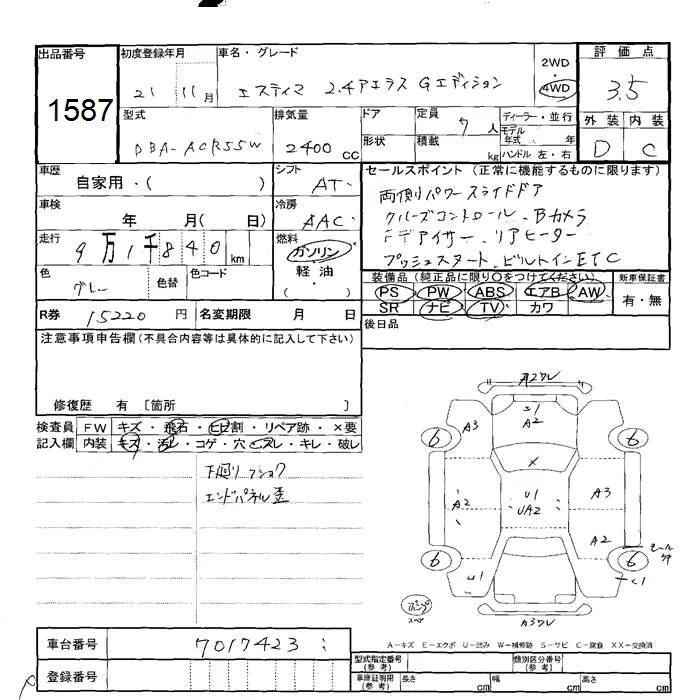 出品番号 初度登録年月 車名・グレード 2WD 評価点
1587 21 11月 エスティマ 2.4アエラス Gエディション 4WD 3.5
型式 排気量 ドア 定員 7人 ディーラー・並行 外装 内装
DBA-ACR55W 2400cc 形状 積載 kg モデル年式 年 D C
ハンドル 左・右
車歴 シフト セールスポイント (正常に機能するものに限ります)
自家用・( ) AT 両側パワースライドドア
車検 年 月( 日) 冷房 AAC クルーズコントロール、Bカメラ
走行 9万1千840km 燃料 ガソリン Fデアイサー、リアヒーター
色 グレー 色替 色コード 軽油・( ・ ) プッシュスタート、ビルトインETC
装備品(純正品に限り○をつけてください) 新車保証書
PS PW ABS エアB AW 有・無
SR ナビ TV カワ
R券 15220円 名変期限 月 日 後日品
注意事項申告欄(不具合内容等は具体的に記入して下さい)
修復歴 有 〔箇所 〕
検査員 FW キズ・飛石・ヒビ割・リペア跡・×要
記入欄 内装 キズ・汚レ・コゲ・穴・スレ・キレ・破レ
下廻りフショク
エンドパネル歪
A2ワレ
U1
A2
A3
6 6
X
A2
U1
UA2
A3
A2
6 6
モール
U1
C1
スペア
A3ワレ
A-キズ E-エクボ U-凹み W-補修跡 S-サビ C-腐食 XX-交換済
車台番号 7017423
登録番号
型式指定番号(参考) 類別区分番号(参考)
車庫証明用(参考) 長さ cm 幅 cm 高さ cm